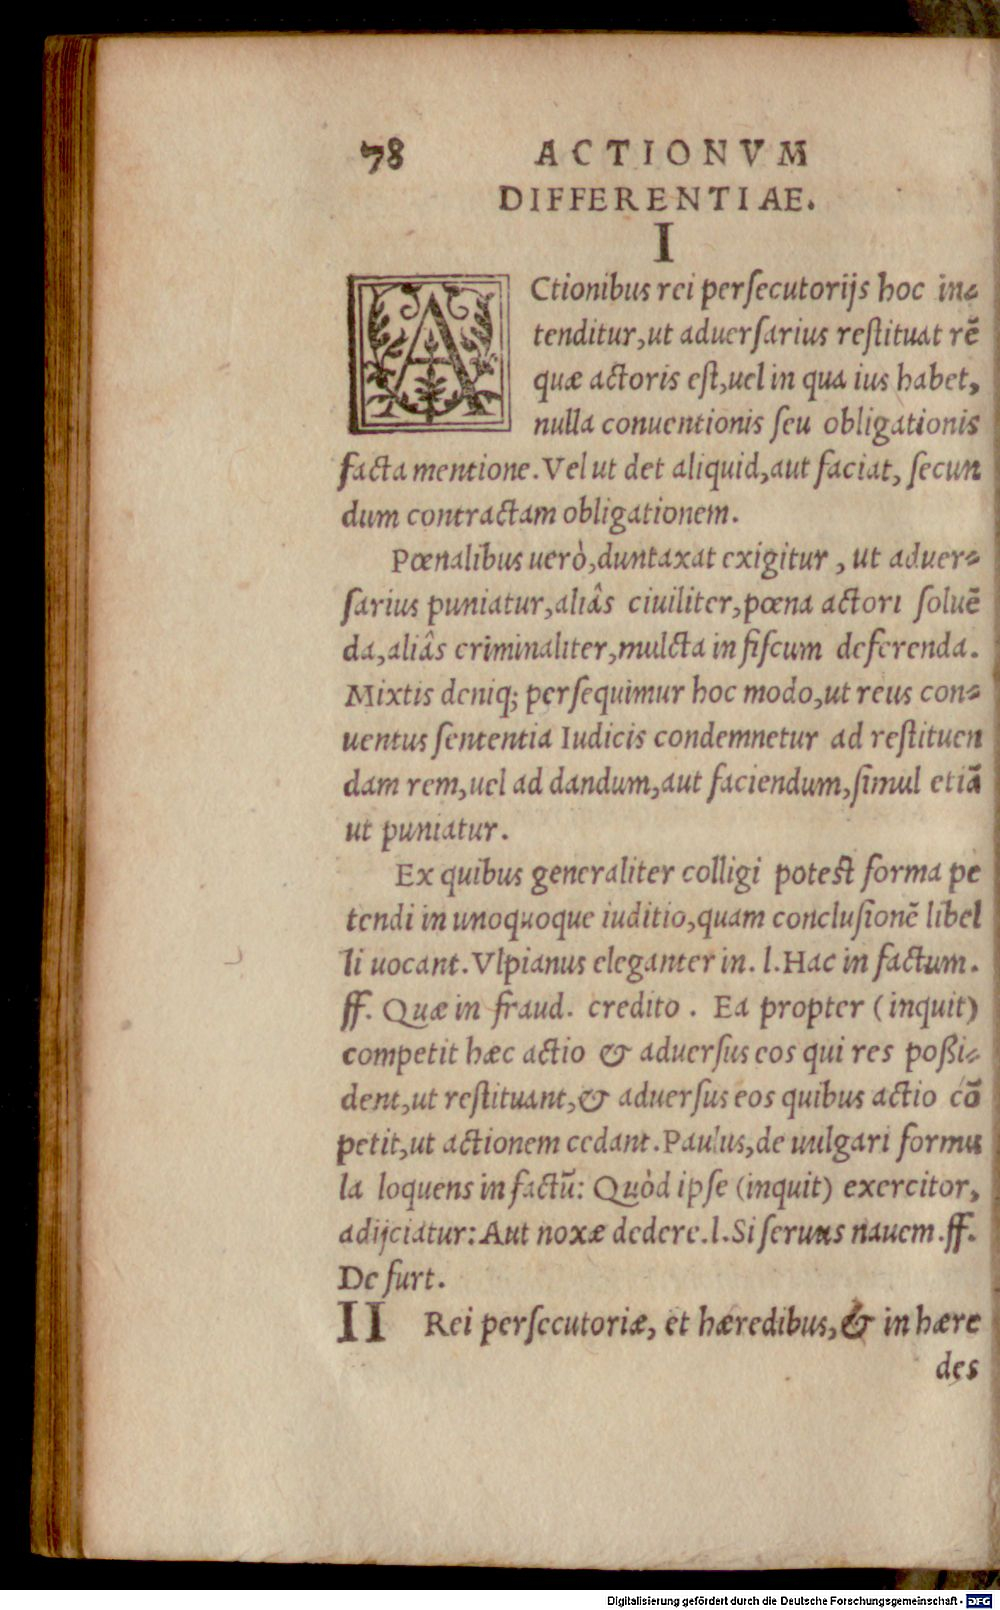 78 ACTIONVM
DIFFERENTIAE.
I
ACtionibus rei perſecutorijs hoc in-
tenditur, ut aduerſarius reſtituat rē
quæ actoris eſt, uel in qua ius habet,
nulla conuentionis ſeu obligationis
facta mentione. Vel ut det aliquid, aut faciat, ſecun
dum contractam obligationem.
Pœnalibus uerò, duntaxat exigitur, ut aduer-
ſarius puniatur, aliâs ciuiliter, pœna actori ſoluē
da, aliâs criminaliter, mulcta in fiſcum deferenda.
Mixtis deniq; perſequimur hoc modo, ut reus con-
uentus ſententia Iudicis condemnetur ad reſtituen
dam rem, uel ad dandum, aut faciendum, ſimul etiā
ut puniatur.
Ex quibus generaliter colligi poteſt forma pe
tendi in unoquoque iuditio, quam concluſionē libel
li uocant. Vlpianus eleganter in. l. Hac in factum.
ff. Quæ in fraud. credito. Ea propter (inquit)
competit hæc actio & aduerſus eos qui res poßi-
dent, ut reſtituant, & aduerſus eos quibus actio cō
petit, ut actionem cedant. Paulus, de uulgari formu
la loquens in factū: Quòd ipſe (inquit) exercitor,
adijciatur: Aut noxæ dedere. l. Si ſeruus nauem. ff.
De furt.
II Rei perſecutoriæ, et hæredibus, & in hære
des
Digitalisierung gefördert durch die Deutsche Forschungsgemeinschaft - DFG